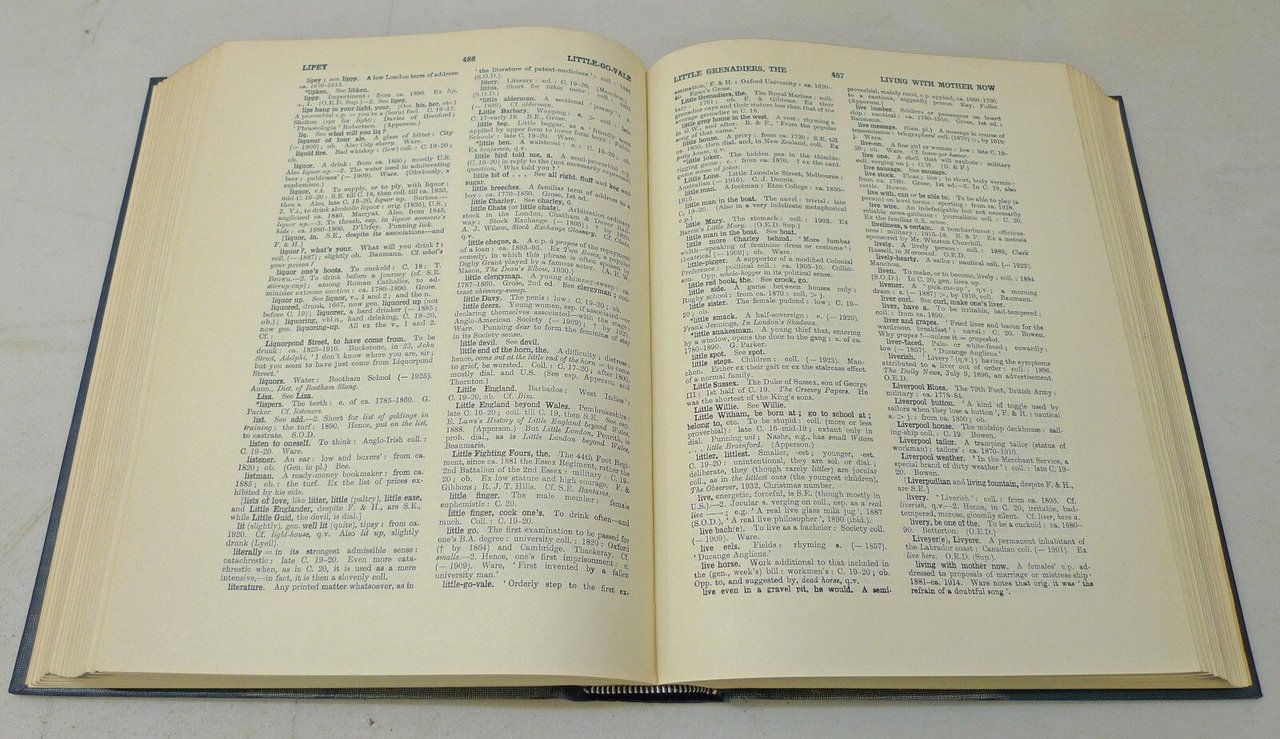 LIPEY
486
LITTLE-GO-VALE
lipey; see lippy. A low London term of address:
ca. 1870-1910.
*lipken. See libken.
lippy. Impertinent: from ca. 1890. Ex lip,
1. (O.E.D. Sup.)—2. See lipey.
lips hang in your light, your. (Occ. his, her, etc.)
A proverbial c.p. = you're a (born) fool: C. 16-17.
Skelton (eye for light); Davies of Hereford;
'Phraseologia' Robertson. (Apperson.)
liq. See what will you liq?
liqueur of four ale. A glass of bitter: City
(— 1909); ob. Also City sherry. Ware.
liquid fire. Bad whiskey: (low) coll.: C. 19-20;
ob.
liquor. A drink: from ca. 1860; mostly U.S.
Also liquor-up.—2. The water used in adulterating
beer: publicans' (— 1909). Ware. (Obviously, a
euphemism.)
liquor, v.i. To supply, or to ply, with liquor:
mid-C. 16-20: S.E. till C. 18, then coll. till ca. 1850,
then s. Also, late C. 19-20, liquor up. Surtees.—
2. V.i., to drink alcoholic liquor: orig. (1836), U.S.;
anglicised ca. 1840. Marryat. Also, from 1845,
liquor up.—3. To thrash, esp. in liquor someone's
hide: ca. 1680-1800. D'Urfey. Punning lick.
[liquor, in. S.E., despite its associations—and
F. & H.]
liquor?, what's your. What will you drink?:
coll. (— 1887); slightly ob. Baumann. Cf. what's
your poison?
liquor one's boots. To cuckold: C. 18; T.
Brown.—2. To drink before a journey (cf. S.E.
stirrup-cup); among Roman Catholics, to ad-
minister extreme unction: ca. 1780-1890. Grose.
liquor up. See liquor, v., 1 and 2; and the n.
liquored, drunk, 1667, now gen. liquored up (not
before C. 19); liquorer, a hard drinker (— 1885;
ob.); liquoring, vbl.n., hard drinking, C. 19-20,
now gen. liquoring-up. All ex the v., 1 and 2.
Cf.
Liquorpond Street, to have come from. To be
drunk: ca. 1825-1910. Buckstone, in 23, John
Street, Adelphi, 'I don't know where you are, sir;
but you seem to have just come from Liquorpond
Street.'
liquors. Water: Bootham School (— 1925).
Anon., Dict. of Bootham Slang.
Lisa. See Liza.
*lispers. The teeth: c. of ca. 1785-1860. G.
Parker. Cf. listeners.
list. See add.—2. Short for list of geldings in
training: the turf: 1890. Hence, put on the list,
to castrate. S.O.D.
listen to oneself. To think: Anglo-Irish coll.:
C. 19-20. Ware.
listener. An ear: low and boxers': from ca.
1820; ob. (Gen. in pl.) Bee.
listman. A ready-money bookmaker: from ca.
1885; ob.: the turf. Ex the list of prices ex-
hibited by his side.
[lists of love, like litter, little (paltry), little ease,
and Little Englander, despite F. & H., are S.E.,
while Little Guid, the devil, is dial.]
lit (slightly); gen. well lit (quite), tipsy: from ca.
1920. Cf. light-house, q.v. Also lit up, slightly
drunk (Lyell).
literally = in its strongest admissible sense:
catachrestic: late C. 19-20. Even more cata-
chrestic when, as in C. 20, it is used as mere
intensive,—in fact, it is then a slovenly coll.
literature. Any printed matter whatsoever, as in
'the literature of patent-medicines': coll.: 1895
(S.O.D.).
litery. Literary: sol.: C. 19-20. (Manchon.)
(S.O.D.)
*little alderman. A sectional 'jemmy':
(— 1890). Cf. alderman.
Little Barbary. Wapping: s. > coll.: late
C. 17-early 19. B.E.; Grose.
little beg. Little beggar, as a 'friendly' term
applied by upper form to lower form boys: Public
Schools': late C. 19-20. Ware.
*little ben. A waistcoat: c.: C. 19-20; ob.
Ex benjamin, q.v.
little bird told me, a. A semi-proverbial c.p.
(C. 19-20) in reply to the (not necessarily expressed)
question, 'Who told you?'
little bit of... See all right, fluff and keg and
sugar.
little breeches. A familiar term of address to a
boy: ca. 1770-1850. Grose, 1st ed.
little Charley. See charley, 6.
Little Chats (or little chats). Arbitration ordinary
stock in the London, Chatham & Dover Railway:
Stock Exchange (— 1895).
A. J. Wilson, Stock Exchange Glossary. Cf. Chats,
q.v.
little cheque, a. A c.p. à propos of the repayment
of a loan: ca. 1893-95. Ex 'Two Roses', a
comedy, in which this phrase is often said by
Digby Grant played by a famous actor. (A. E. W.
Mason, The Dean's Elbow, 1930.)
little clergyman. A young chimney-sweep: ca.
1787-1860. Grose, 2nd ed. See clergyman; con-
trast chimney-sweep.
little Davy. The penis: low: C. 19-20; ob.
little deers. Young women, esp. if associated—or
declaring themselves associated—with the stage:
Anglo-American Society (— 1909); † by 1920.
Ware. Punning dear to form the feminine of stag
in its Society sense.
little devil. See devil.
little end of the horn, the. A difficulty; distress:
hence, come out at the little end of the horn = to come
to grief, be worsted. Coll.: C. 17-20; after 1800,
mostly dial. and U.S. (See esp. Apperson and
Thornton.)
Little England. Barbados: West Indies';
C. 19-20, ob. Cf. Bim.
Little England beyond Wales. Pembrokeshire:
late C. 16-20; coll. till C. 19, then S.E. See esp.
E. Laws's History of Little England beyond Wales,
1888. (Apperson.) But Little London, Penrith, is
prob. dial., as is Little London beyond Wales,
Beaumaris.
Little Fighting Fours, the. The 44th Foot Regi-
ment, since ca. 1881 the Essex Regiment, rather the
2nd Battalion of the 2nd Essex: military: C. 19-
20; ob. Ex low stature and high courage. F. &
Gibbons; R. J. T. Hills. Cf. S.E. Bantams.
little finger. The male member: female
euphemistic: C. 20.
little finger, cock one's. To drink often—and
much. Coll.: C. 19-20.
little go. The first examination to be passed for
one's B.A. degree: university coll.: 1820: Oxford
(† by 1864) and Cambridge. Thackeray. Cf.
smalls.—2. Hence, one's first imprisonment: c.
(— 1909). Ware, 'First invented by a fallen
university man.'
little-go-vale. 'Orderly step to the first ex-
LITTLE GRENADIERS, THE
487
LIVING WITH MOTHER NOW
amination,' F. & H.: Oxford University: ca. 1820-
40. Egan's Grose.
Little Grenadiers, the. The Royal Marines: mili-
tary: 1761; ob. F. & Gibbons. Ex their
grenadier caps and their stature less than that of the
average grenadier in C. 18.
little grey home in the west. A vest: rhyming s.
in C. 20. and after. B. & P., 'From the popular
song of that name.'
little house. A privy: from ca. 1720: S.E. till
ca. 1850, then dial. and, in New Zealand, coll. Ex
petty house, q.v.
*little joker. The hidden pea in the thimble-
rigging game: c.: from ca. 1870. ? ex the sen.
game sense of joker.
Little Lons. Little Lonsdale Street, Melbourne:
Australian (— 1916). C. J. Dennis.
little man. A footman: Eton College: ca. 1850-
1915.
little man in the boat. The navel: trivial: late
C. 19-20. (Also in a very indelicate metaphorical
c.p.)
little Mary. The stomach: coll.: 1903. Ex
Barrie's Little Mary. (O.E.D. Sup.)
little man in the boat. See boat.
little more Charley behind. 'More lumbar
width—speaking of feminine dress or costume':
theatrical (— 1909); ob. Ware.
little-pigger. A supporter of a modified Colonial
Preference: political coll.: ca. 1905-10. Collin-
son. Opp. whole-hogger in its political sense.
little red book, the. See crook, go.
little side. A game between houses only:
Rugby school: from ca. 1870: coll. > j.
little sister. The female pudend: low: C. 19-
20; ob.
*little smack. A half-sovereign: c. (— 1926).
Frank Jennings, In London's Shadows.
*little snakesman. A young thief that, entering
by a window, opens the door to the gang: c. of ca.
1780-1890. G. Parker.
little spot. See spot.
little steps. Children: coll. (— 1923). Man-
chon. Either ex their gait or ex the staircase effect
of a normal family.
Little Sussex. The Duke of Sussex, son of George
III: 1st half of C. 19. The Creevey Papers. He
was the shortest of the King's sons.
Little Willie. See Willie.
Little Witham, be born at; go to school at;
belong to, etc. To be stupid: coll. (more or less
proverbial): late C. 16-mid-19; extant only in
dial. Punning wit; Nashe, e.g., has small Witam
little Brainford. (Apperson.)
littler, littlest. Smaller, -est; younger, -est.
C. 19-20: unintentional, they are sol. or dial.;
deliberate, they (though rarely littler) are jocular
coll., as in the littlest ones (the youngest children),
The Observer, 1932, Christmas number.
live, energetic, forceful, is S.E. (though mostly in
U.S.).—2. Jocular s. verging on coll., esp. as a real
live —: e.g. 'A real live glass milk jug', 1887
(S.O.D.), 'A real live philosopher', 1890 (ibid.).
live bach(e). To live as a bachelor: Society coll.
(— 1909). Ware.
live eels. Fields: rhyming s. (— 1857).
'Ducange Anglicus.'
live horse. Work additional to that included in
the (gen., week's) bill: workmen's: C. 19-20; ob.
Opp. to, and suggested by, dead horse, q.v.
live even in a gravel pit, he would. A semi-
proverbial, mainly rural, c.p. applied, ca. 1660-1750,
to a cautious, niggardly person. Ray, Fuller.
(Apperson.)
live lumber. Soldiers or passengers on board
ship: nautical: ca. 1780-1910. Grose, 1st ed.;
Bowen.
live message. (Gen. pl.) A message in course of
transmission: telegraphers' coll. (1870) >, by 1910,
j. Ware.
live-on. A fine girl or woman: low: late C. 19-
20; ob. Ware. Cf. leave-yer-homer.
live one. A shell that will explode: military
coll. verging on j.: G.W. (B. & P.)
live sausage. See sausage.
live stock. Fleas; lice; in short, body vermin:
from ca. 1780. Grose, 1st ed.—2. In C. 19, also
cattle. Bowen.
live with, can or able to be. To be able to play (a
person) on level terms: sporting: from ca. 1928.
live wire. An indefatigable but not necessarily
reliable news-gatherer: journalistic coll.: C. 20.
Ex the familiar S.E. sense.
liveliness, a certain. A bombardment; officious-
ness: military: 1915-18. B. & P. Ex a meiosis
sponsored by Mr. Winston Churchill.
lively. A lively person: coll.: 1889, Clark
Russell, in Marooned. O.E.D.
lively-hearty. A sailor: nautical coll. (— 1923).
Manchon.
liven. To make, or to become, lively: coll.: 1884
(S.O.D.). In C. 20, gen. liven up.
livener. A 'pick-me-up', q.v.; a morning
dram: s. (— 1887) >, by 1910, coll. Baumann.
liver curl. See curl, make one's liver.
liver, have a. To be irritable, bad-tempered:
coll.: from ca. 1890.
liver and grapes. 'Fried liver and bacon for the
wardroom breakfast': naval: C. 20. Bowen.
Why grapes?—unless it = grapeshot.
liver-faced. Pale- or white-faced; cowardly:
low (— 1857). 'Ducange Anglicus.'
liverish. 'Livery' (q.v.); having the symptoms
attributed to a liver out of order: coll.: 1896.
The Daily News, July 9, 1896, an advertisement.
O.E.D.
Liverpool Blues. The 79th Foot, British Army:
military: ca. 1778-84.
Liverpool button. 'A kind of toggle used by
sailors when they lose a button', F. & H.: nautical
s. > j.: from ca. 1850; ob.
Liverpool house. The midship deckhouse: sail-
ing-ship coll.: C. 19. Bowen.
Liverpool tailor. A tramping tailor (status of
workman); tailors': ca. 1870-1910.
Liverpool weather. 'In the Merchant Service, a
special brand of dirty weather': coll.: late C. 19-
20. Bowen.
(Liverpudlian and living fountain, despite F. & H.,
are S.E.]
livery. 'Liverish': coll.: from ca. 1895. Cf.
liverish, q.v.—2. Hence, in C. 20, irritable, bad-
tempered, morose, gloomily silent. Cf. liver, have a.
livery, be one of the. To be a cuckold: ca. 1680-
90. Betterton. (O.E.D.)
Liveyer(e), Livyere. A permanent inhabitant of
the Labrador coast: Canadian coll. (— 1901). Ex
live here. O.E.D. (Sup.)
living with mother now. A females' c.p. ad-
dressed to proposals of marriage or mistress-ship:
1881-ca. 1914. Ware notes that orig. it was 'the
refrain of a doubtful song'.